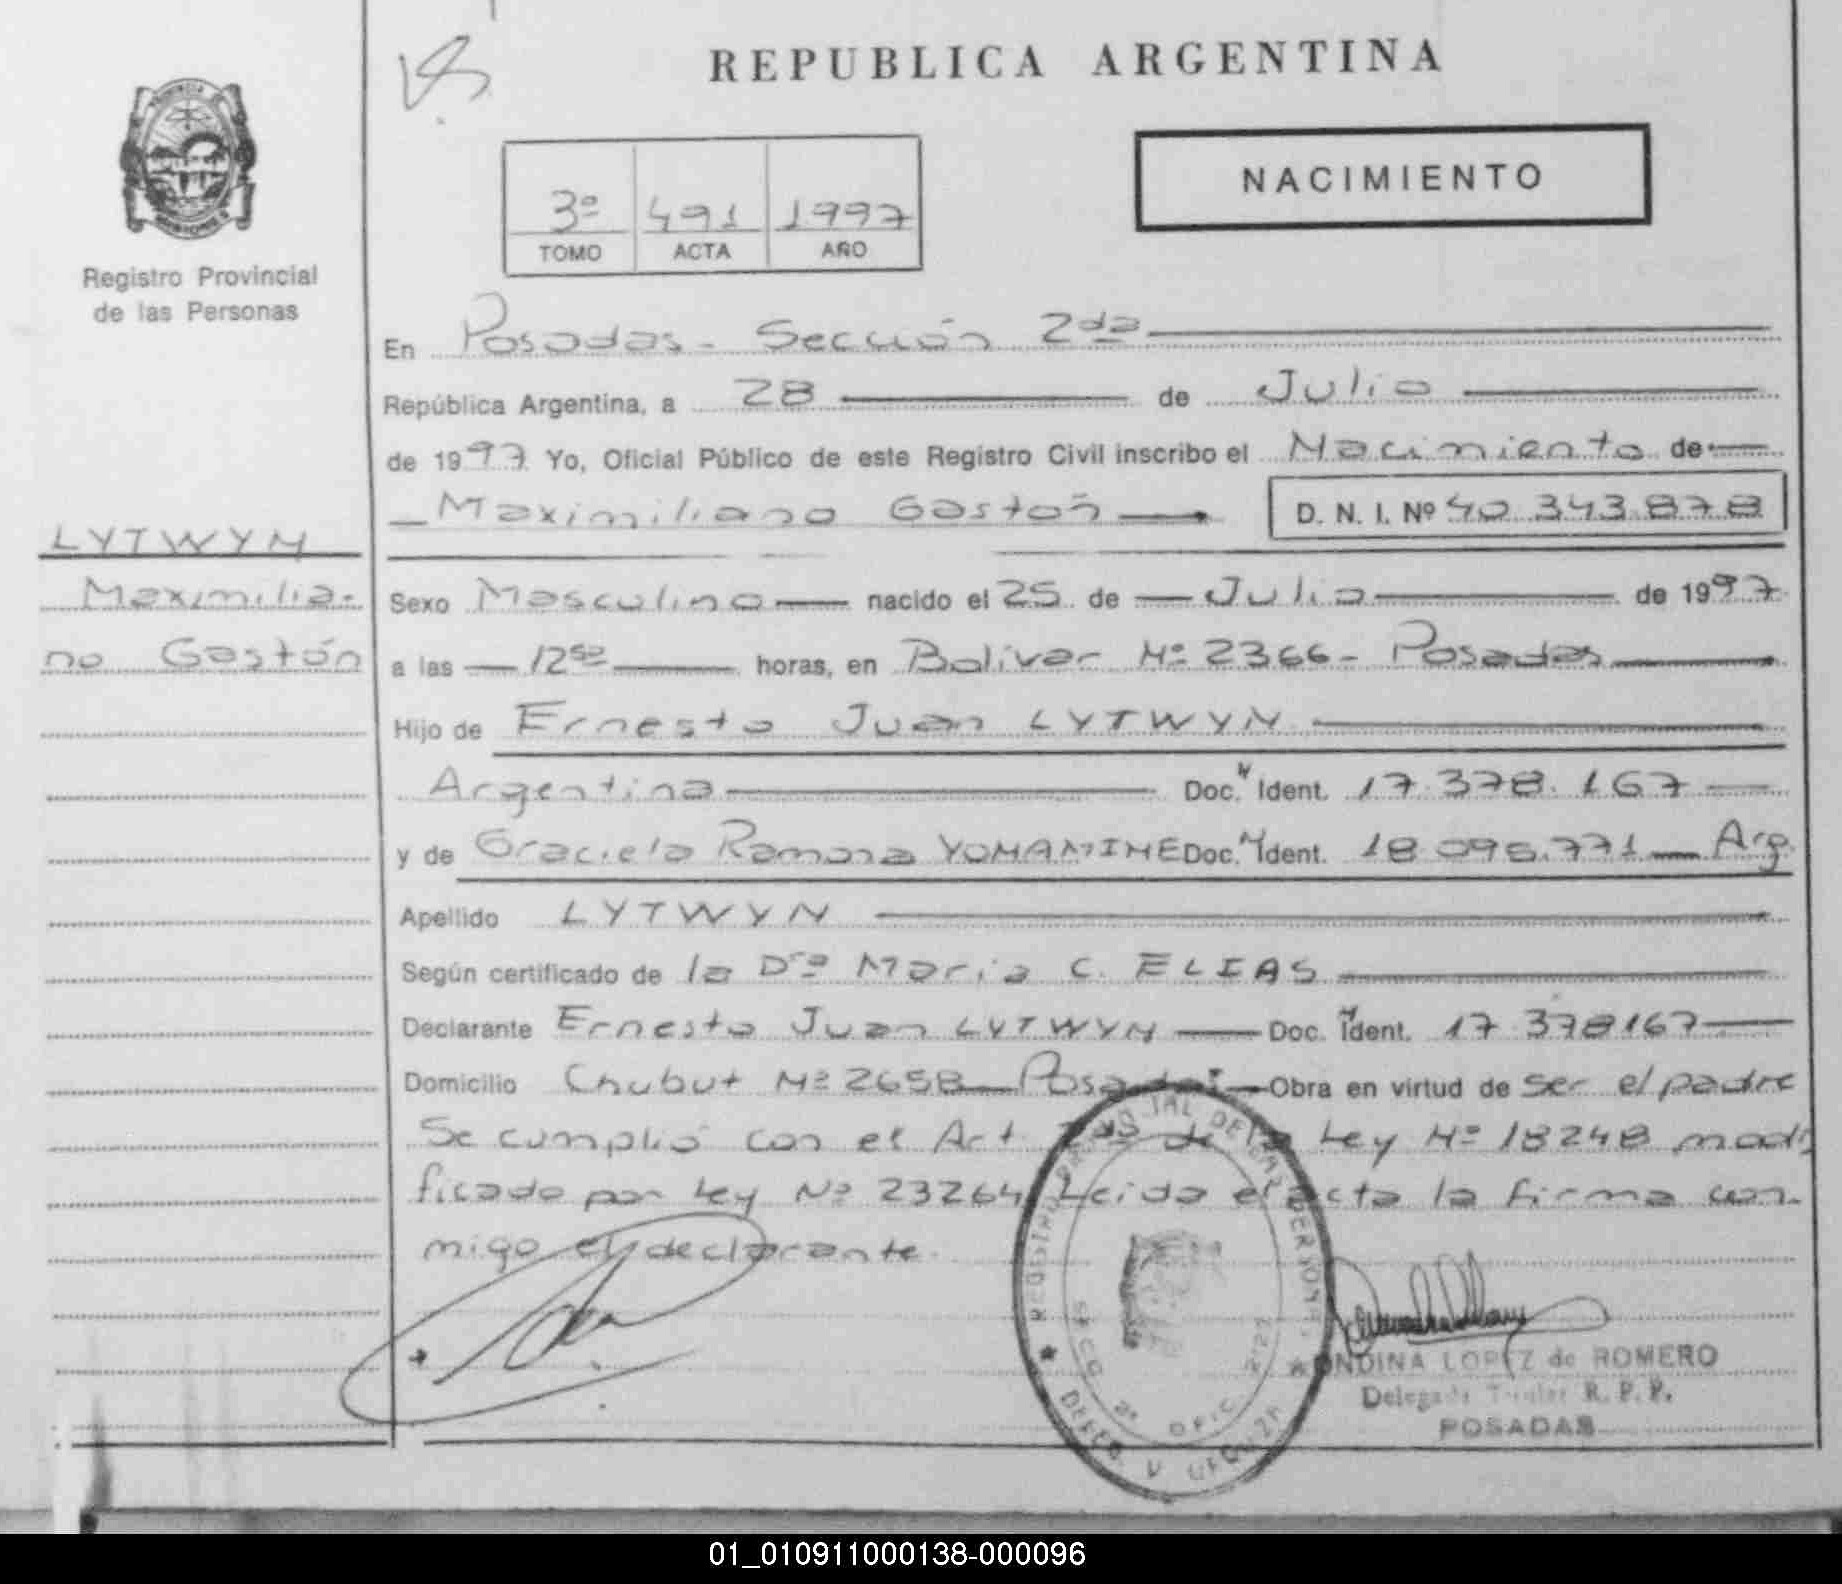 REPUBLICA ARGENTINA
NACIMIENTO
3º 491 1997
TOMO ACTA AÑO
Registro Provincial
de las Personas
En Posadas - Sección 2da
República Argentina, a 28 de Julio
de 1997 Yo, Oficial Público de este Registro Civil inscribo el Nacimiento de
Maximiliano Gastón D. N. I. Nº 40.343.878
LYTWYN
Maximilia-
no Gastón
Sexo Masculino nacido el 25 de Julio de 1997
a las 12 50 horas, en Bolivar Nº 2366 - Posadas
Hijo de Ernesto Juan LYTWYN
Argentina Doc. N Ident. 17.378.167
y de Graciela Ramona YONAMINE Doc. N Ident. 18.095.771 Arg.
Apellido LYTWYN
Según certificado de la Dra Maria C. ELIAS
Declarante Ernesto Juan LYTWYN Doc. N Ident. 17.378167
Domicilio Chubut Nº 2658 Posadas Obra en virtud de ser el padre
Se cumplió con el Art. de la Ley Nº 18248 modi
ficado por Ley Nº 23264 Leida el acta la firma con-
migo el declarante.
REGISTRO PROVINCIAL DE LAS PERSONAS
SECC 2ª OFIC
ONDINA LOPEZ de ROMERO
Delegada Titular R. P. P.
POSADAS
01_010911000138-000096